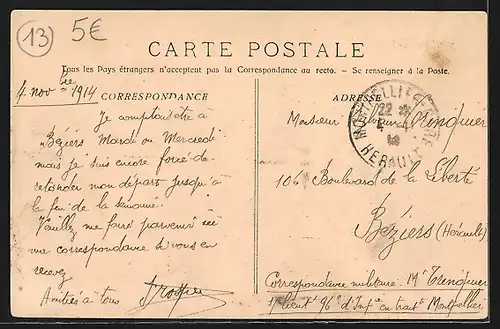 13
5€
CARTE POSTALE
Tous les Pays étrangers n'acceptent pas la Correspondance au recto. — Se renseigner à la Poste.
4 novbre 1914
CORRESPONDANCE
Je comptais être à
Béziers Mardi ou Mercredi
mais je suis encore forcé de
retarder mon départ jusqu'à
la fin de la semaine.
Veuillez me faire parvenir ici
ma correspondance si vous en
recevez
Amitiés à tous
ADRESSE
MONTPELLIER GARE
HERAULT
Monsieur Trinquier
106 Boulevard de la Liberté
Béziers (Hérault)
Correspondance militaire: Mr Trinquier
96e d'Infie en trait Montpellier